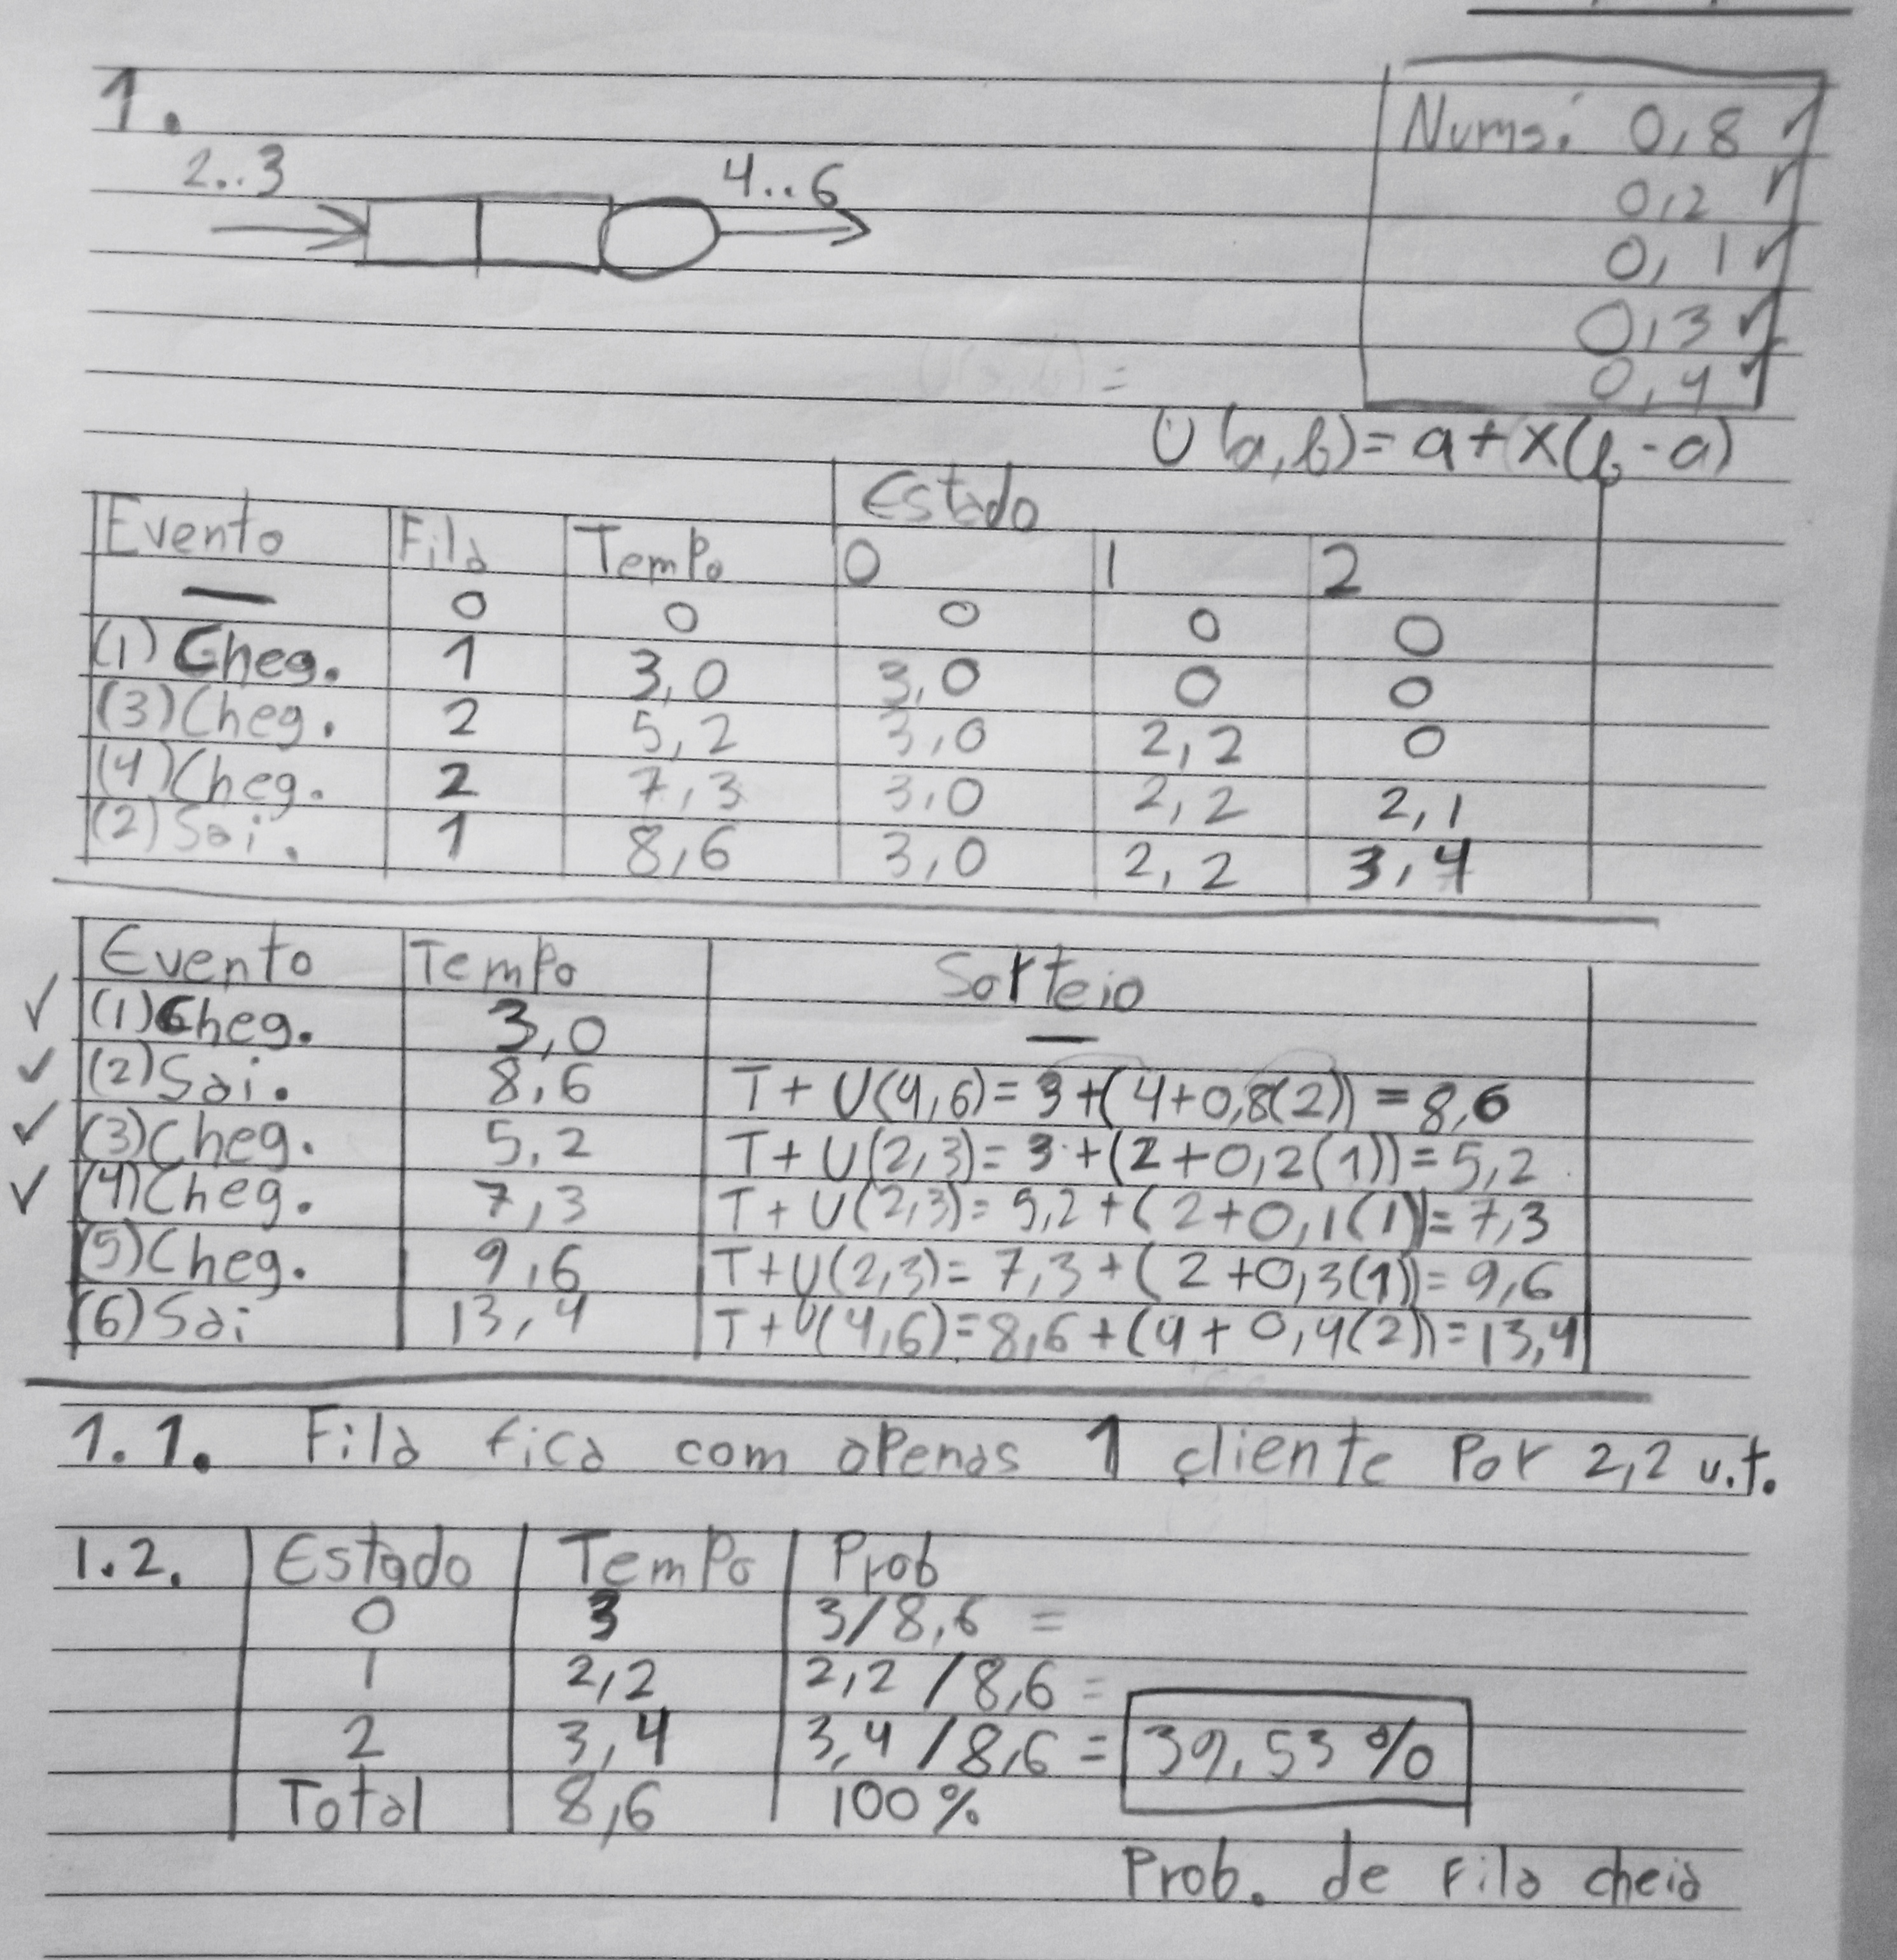 1.
2..3
4..6
Nums: 0,8 ✓
0,2 ✓
0,1 ✓
0,3 ✓
0,4 ✓
U(a,b) = a + x(b - a)
Estado
Evento Fila Tempo 0 1 2
— 0 0 0 0 0
(1) Cheg. 1 3,0 3,0 0 0
(3) Cheg. 2 5,2 3,0 2,2 0
(4) Cheg. 2 7,3 3,0 2,2 2,1
(2) Sai. 1 8,6 3,0 2,2 3,4
Evento Tempo Sorteio
✓ (1) Cheg. 3,0 —
✓ (2) Sai. 8,6 T + U(4,6) = 3 + (4+0,8(2)) = 8,6
✓ (3) Cheg. 5,2 T + U(2,3) = 3 + (2+0,2(1)) = 5,2
✓ (4) Cheg. 7,3 T + U(2,3) = 5,2 + (2+0,1(1)) = 7,3
(5) Cheg. 9,6 T + U(2,3) = 7,3 + (2+0,3(1)) = 9,6
(6) Sai 13,4 T + U(4,6) = 8,6 + (4+0,4(2)) = 13,4
1.1. Fila fica com apenas 1 cliente por 2,2 u.t.
1.2. Estado Tempo Prob
0 3 3/8,6 =
1 2,2 2,2/8,6 =
2 3,4 3,4/8,6 = 39,53%
Total 8,6 100%
Prob. de Fila cheia